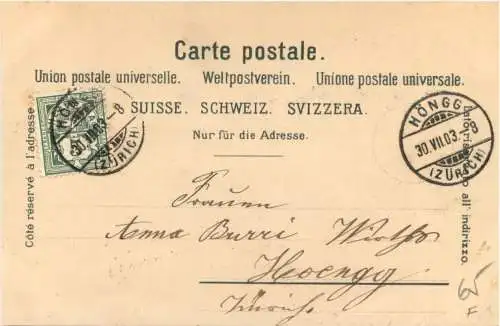 Carte postale.
Union postale universelle. Weltpostverein. Unione postale universale.
SUISSE. SCHWEIZ. SVIZZERA.
Nur für die Adresse.
Côté réservé à l'adresse.
all' indirizzo.
HÖNGG
30.VII.03.-8
(ZÜRICH)
HÖNGG
30.VII.03.-8
(ZÜRICH)
Frauen
Anna Burri
Hoengg
Zürich
F